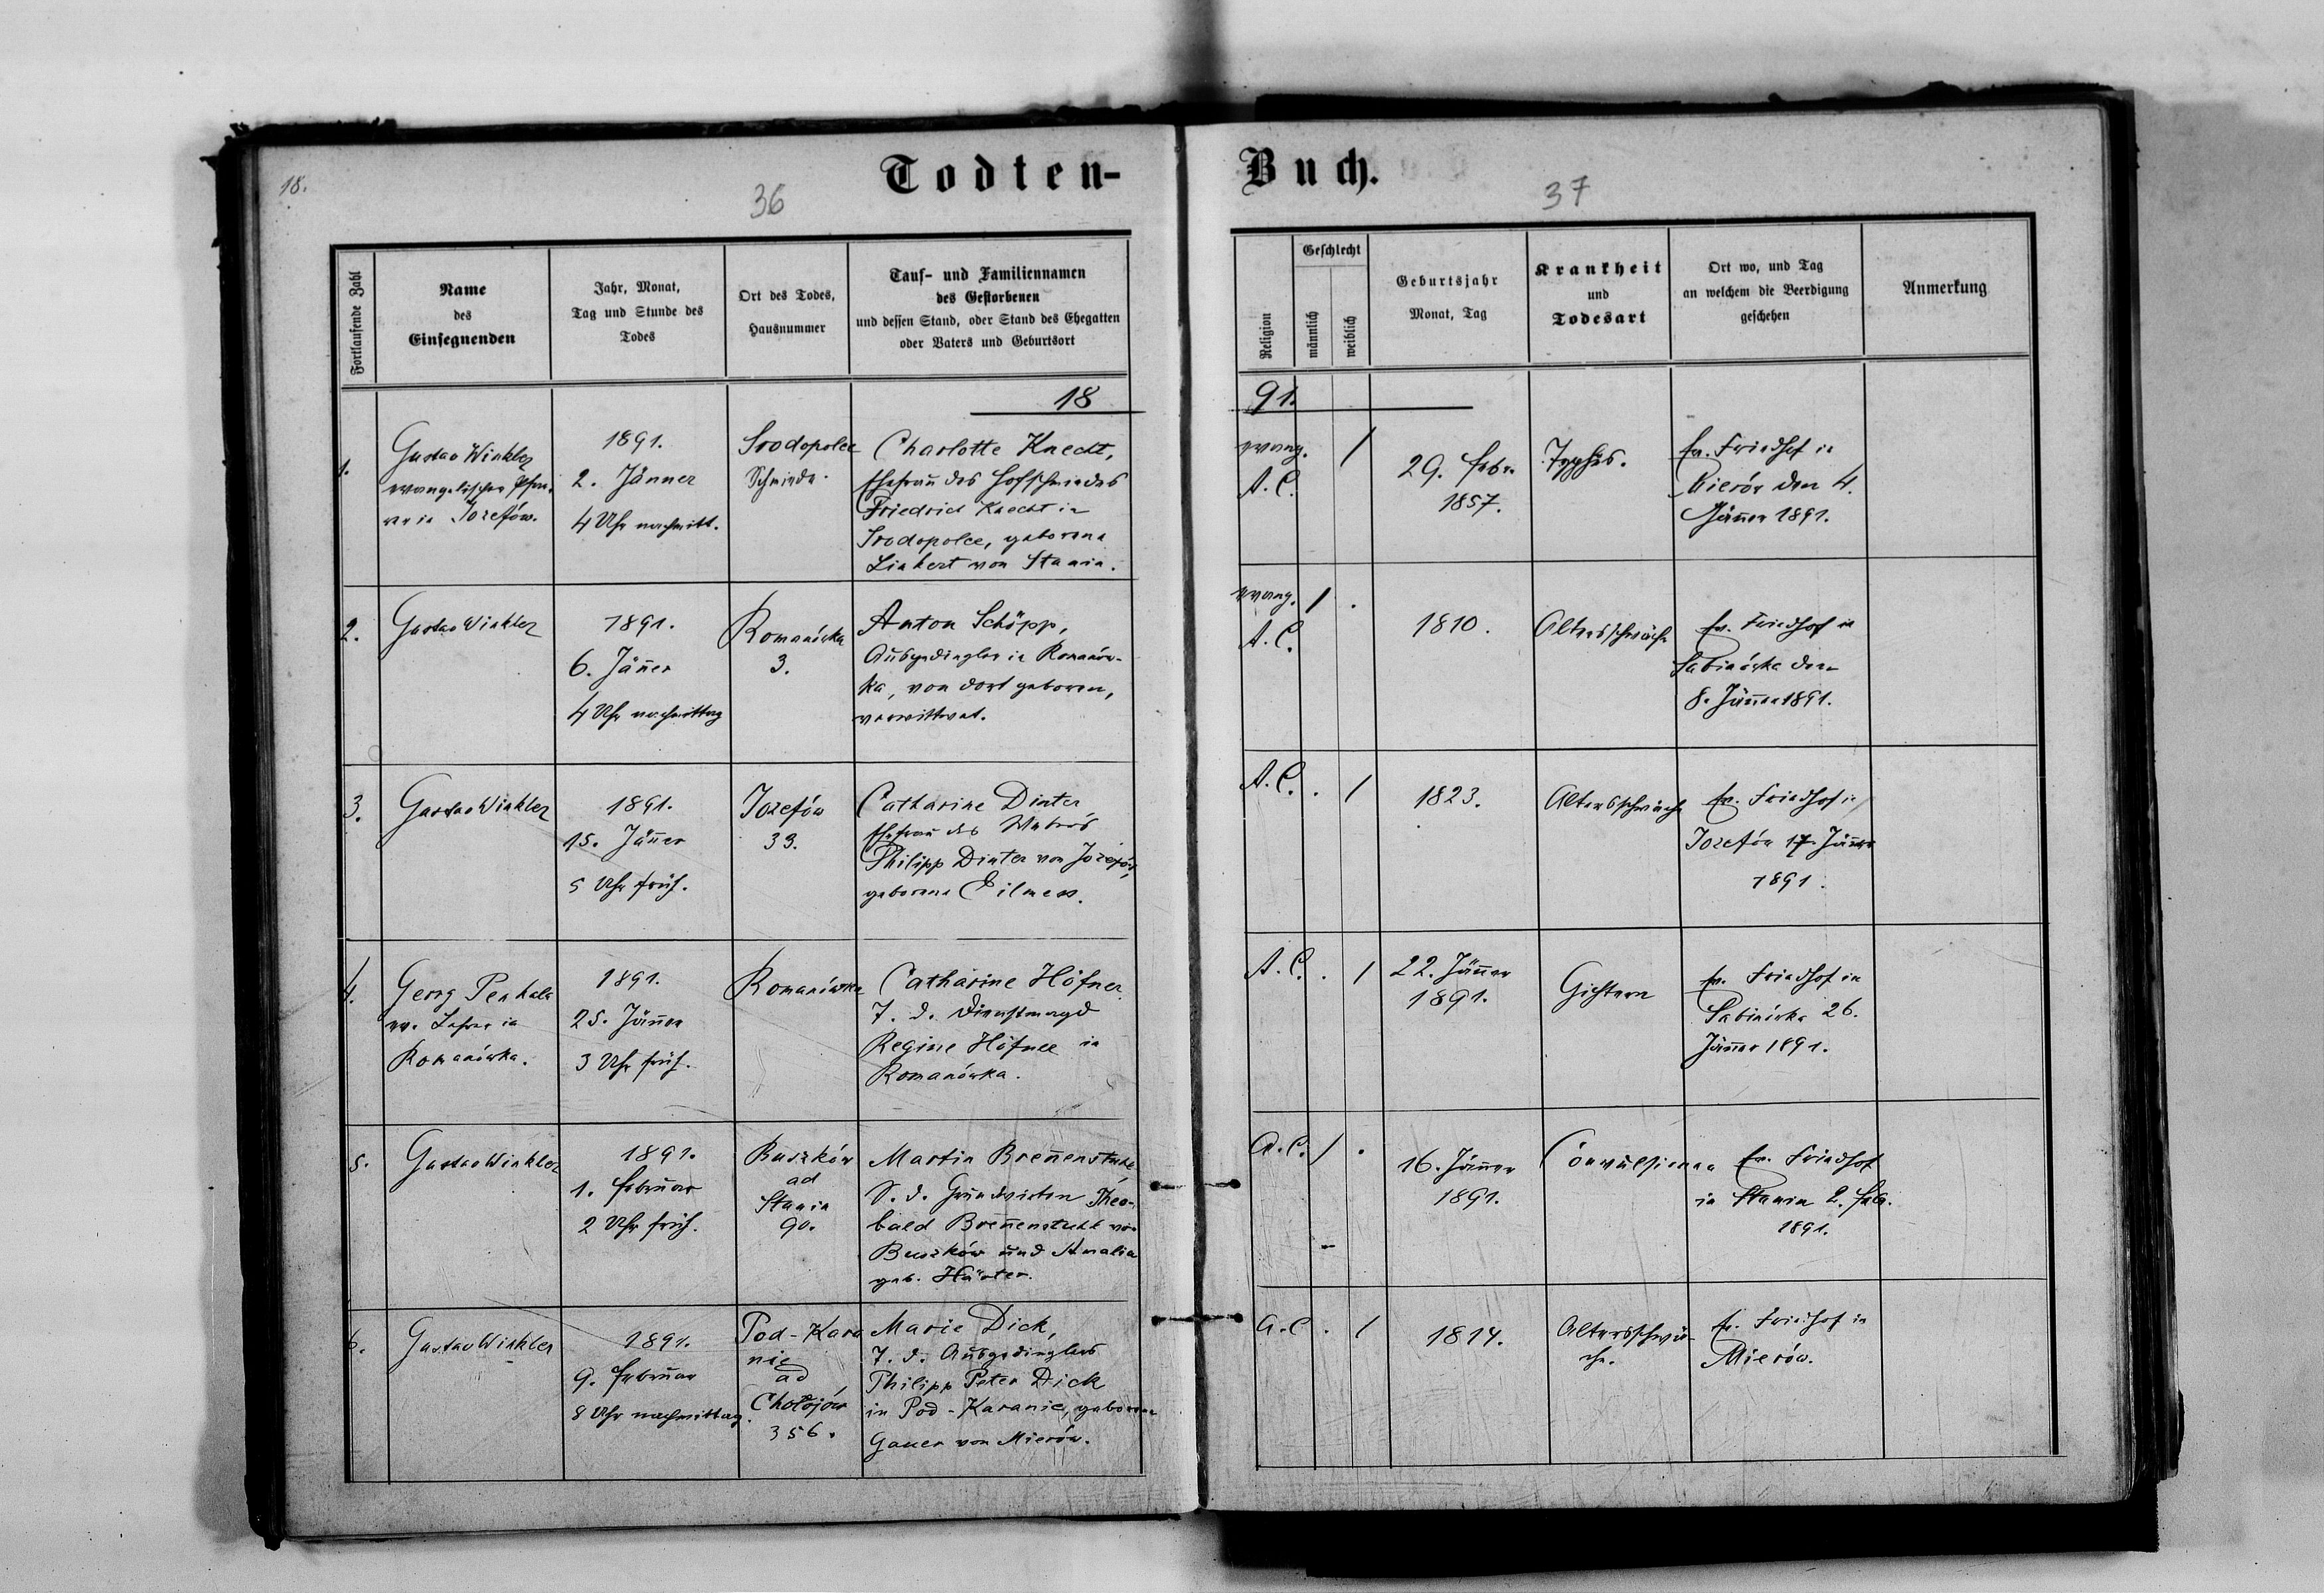 18.
Todten-
36
Fortlaufende Zahl
Name
des
Einsegnenden
Jahr, Monat,
Tag und Stunde des
Todes
Ort des Todes,
Hausnummer
Tauf- und Familiennamen
des Gestorbenen
und dessen Stand, oder Stand des Ehegatten
oder Vaters und Geburtsort
18
1.
Gustav Winkler
evangelischer Pfar-
rer in Josefów.
1891.
2. Jänner
4 Uhr nachmitt.
Srodopolce
Schmiede.
Charlotte Knecht,
Ehefrau des Hofschmiedes
Friedrich Knecht in
Srodopolce, geborene
Linkert von Stanin.
2.
Gustav Winkler
1891.
6. Jänner
4 Uhr nachmittag
Romanówka
3.
Anton Schöpp,
Ausgedingler in Romanów-
ka, von dort geboren,
verwittwet.
3.
Gustav Winkler
1891.
15. Jänner
5 Uhr früh.
Josefów
33.
Catharine Dinter
Ehefrau des Webers
Philipp Dinter von Jozefów,
geborene Eilmess.
4.
Georg Penkala
ev. Lehrer in
Romanówka.
1891.
25. Jänner
3 Uhr früh.
Romanówka
Catharine Höfner
T. d. Dienstmagd
Regine Höfner in
Romanówka.
5.
Gustav Winkler
1891.
1. Februar
2 Uhr früh.
Buszków
ad
Stanin
90.
Martin Brennenstuhl
S. d. Grundwirten Theo-
bald Brennenstuhl von
Buszków und Amalia
geb. Härter.
6.
Gustav Winkler
1891.
9. Februar
8 Uhr nachmittag.
Pod-Kara
nie
ad
Chołojów
356.
Marie Dick,
T. d. Ausgedinglers
Philipp Peter Dick
in Pod-Karanie, geborene
Gauer von Mierów.
Buch.
37
Religion
Geschlecht
männlich
weiblich
Geburtsjahr
Monat, Tag
Krankheit
und
Todesart
Ort wo, und Tag
an welchem die Beerdigung
geschehen
Anmerkung
91.
evang.
A. C.
/
29. Febr.
1857.
Typhus.
Ev. Friedhof in
Mierów den 4.
Jänner 1891.
evang.
A. C.
/ .
1810.
Altersschwäche
Ev. Friedhof in
Sabinówka den
8. Jänner 1891.
A. C. . /
1823.
Altersschwäche
Ev. Friedhof in
Josefów 17. Jänner
1891.
A. C. . /
22. Jänner
1891.
Gichtern
Ev. Friedhof in
Sabinówka 26.
Jänner 1891.
A. C. / .
16. Jänner
1891.
Convulsionen
Ev. Friedhof
in Stanin 2. Febr.
1891.
A. C. . /
1814.
Altersschwä-
che.
Ev. Friedhof in
Mierów.